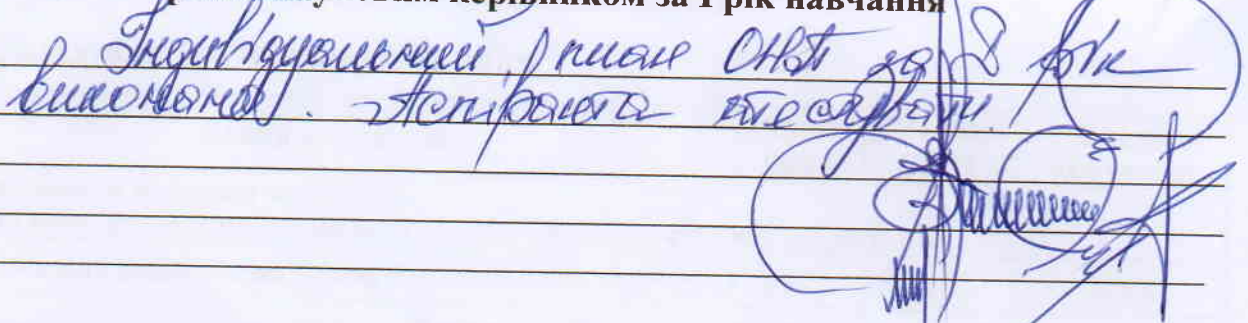 керівником за І рік навчання
Індивідуальний план ОНП за І рік
виконано. Аспіранта атестувати.